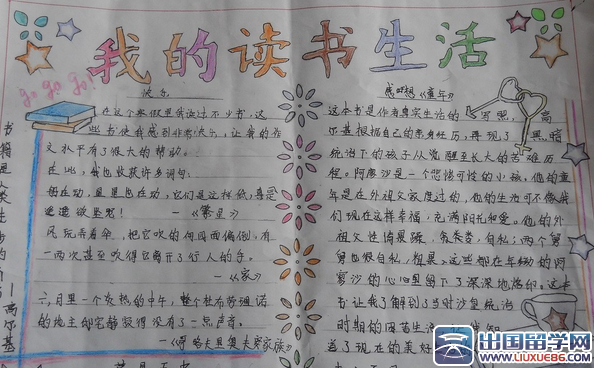 我的读书生活
go go go!
快乐
在这个寒假里我读过不少书,这
些书使我感到非常快乐,让我的作
文水平有了很大的帮助。
在此,我也收获许多词句:
——《繁星》
风玩弄着伞,把它吹的向四面偏倒,有
一两次甚至吹得它离开了行人的手。
——《家》
三月里一个炎热的中午,整个杜布罗潍诺
的地主邸宅静寂得没有了一点声音。
——《哥略夫里奥夫家族》
感想《童年》
这本书是作者真实生活的写照,高
尔基根据自己的亲身经历,再现了黑暗
统治下的孩子从觉醒至长大的苦难历
程。阿廖沙是一个悲惨可怜的小孩,他的童
年是在外祖父家度过的,他的生活可不像我
们现在这样幸福,充满阳光和爱。他的外
祖父性情暴躁、贪婪、自私;两个舅
舅也很自私,粗暴。这些都在年幼的阿
廖沙的心里留下了深深地烙印。这本
书让我了解到了当时沙皇统治
时期的
了现在的美好
书籍是人类进步的
—高尔基
出国留学网
www.liuxue86.com